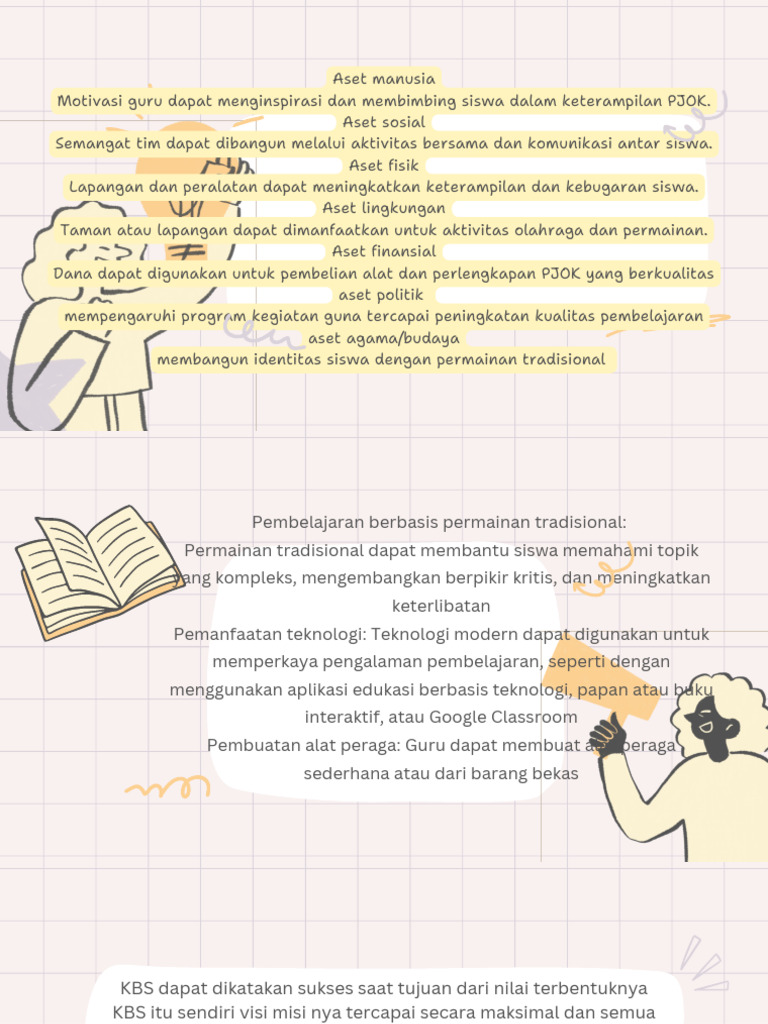 Aset manusia
Motivasi guru dapat menginspirasi dan membimbing siswa dalam keterampilan PJOK.
Aset sosial
Semangat tim dapat dibangun melalui aktivitas bersama dan komunikasi antar siswa.
Aset fisik
Lapangan dan peralatan dapat meningkatkan keterampilan dan kebugaran siswa.
Aset lingkungan
Taman atau lapangan dapat dimanfaatkan untuk aktivitas olahraga dan permainan.
Aset finansial
Dana dapat digunakan untuk pembelian alat dan perlengkapan PJOK yang berkualitas
aset politik
mempengaruhi program kegiatan guna tercapai peningkatan kualitas pembelajaran
aset agama/budaya
membangun identitas siswa dengan permainan tradisional
Pembelajaran berbasis permainan tradisional:
Permainan tradisional dapat membantu siswa memahami topik
yang kompleks, mengembangkan berpikir kritis, dan meningkatkan
keterlibatan
Pemanfaatan teknologi: Teknologi modern dapat digunakan untuk
memperkaya pengalaman pembelajaran, seperti dengan
menggunakan aplikasi edukasi berbasis teknologi, papan atau buku
interaktif, atau Google Classroom
Pembuatan alat peraga: Guru dapat membuat alat peraga
sederhana atau dari barang bekas
KBS dapat dikatakan sukses saat tujuan dari nilai terbentuknya
KBS itu sendiri visi misi nya tercapai secara maksimal dan semua